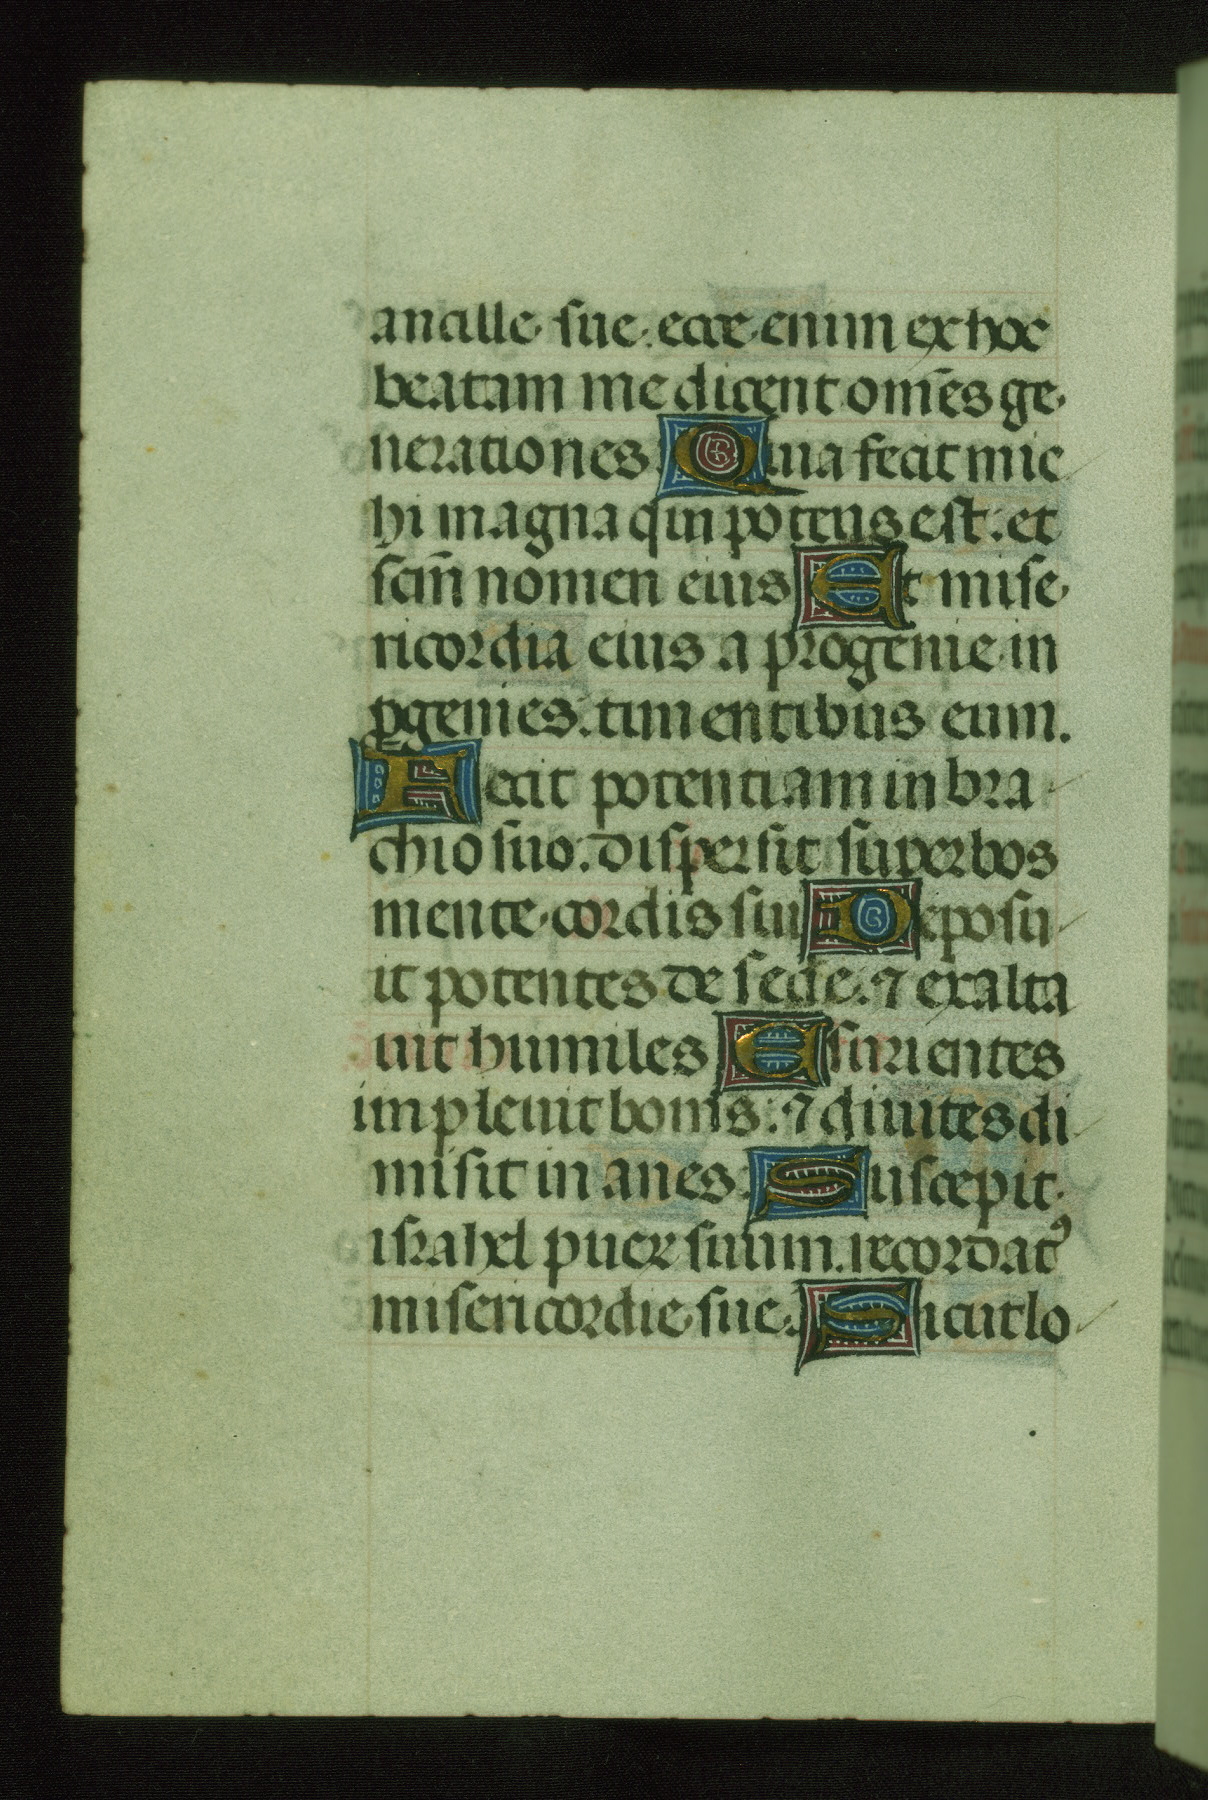 ancille sue. ecce enim ex hoc
beatam me dicent om̄es ge
nerationes Quia fecit mic
hi magna qui potens est: et
scm̄ nomen eius Et mise
ricordia eius a progenie in
ꝓgenies. timentibus eum.
Fecit potentiam in bra
chio suo. dispersit superbos
mente cordis sui Deposu
it potentes de sede. ⁊ exalta
uit humiles Esurientes
impleuit bonis: ⁊ diuites di
misit inanes. Suscepit
israhel puer suum. recordatꝰ
misericordie sue. Sicut lo